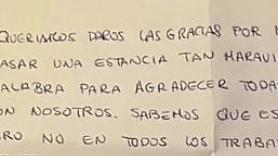 QUERIMOS DAROS LAS GRACIAS POR
ASAR UNA ESTANCIA TAN MARAVI
ALABRA PARA AGRADECER TODA
ON NOSOTROS. SABEMOS QUE ES
RO NO EN TODOS LOS TRABA